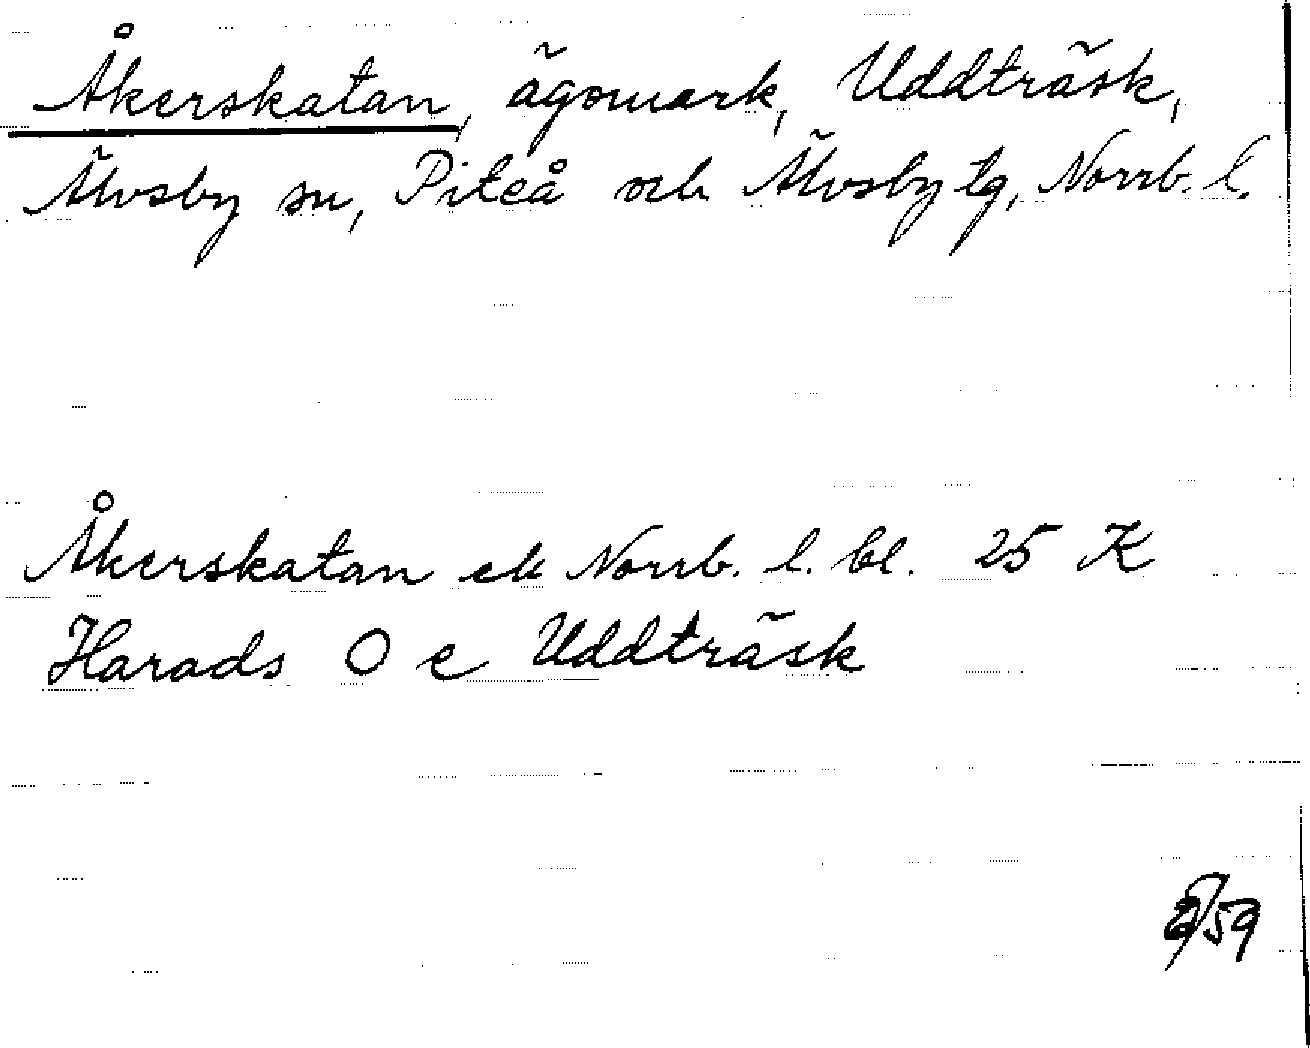 Åkerskatan, ägomark, Uddträsk,
Älvsby sn, Piteå och Älvsby tg, Norrb. l.
Åkerskatan ek Norrb. l. bl. 25 K
Harads O c Uddträsk
/59